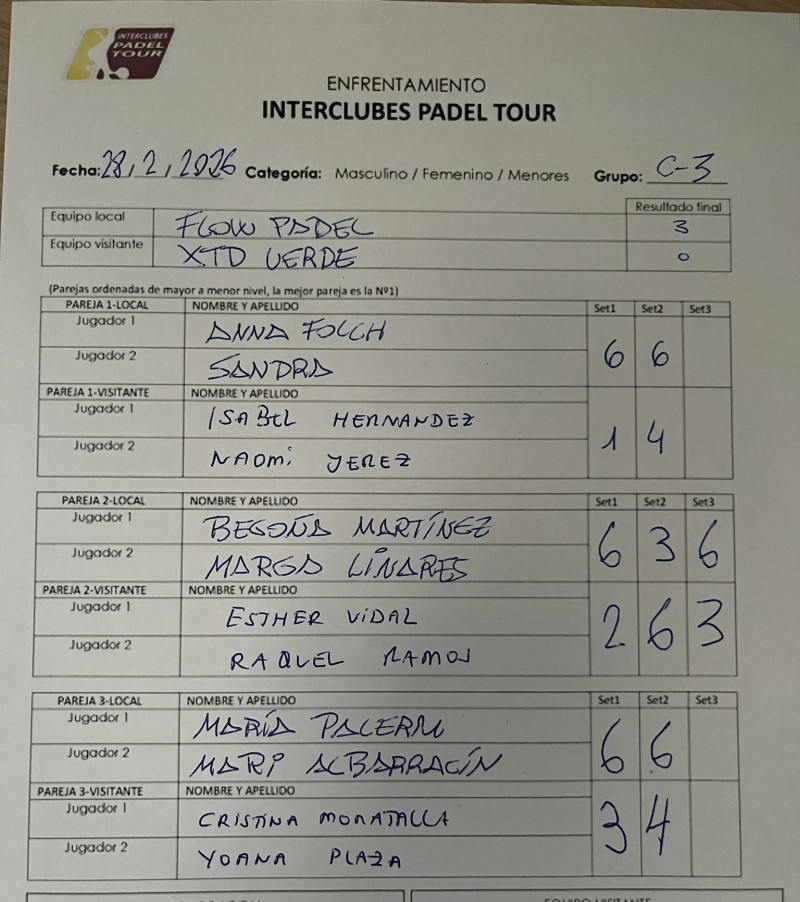 INTERCLUBES
PADEL
TOUR
ENFRENTAMIENTO
INTERCLUBES PADEL TOUR
Fecha: 28 / 2 / 2026 Categoría: Masculino / Femenino / Menores Grupo: C-3
Resultado final
Equipo local FLOW PADEL 3
Equipo visitante XTD VERDE 0
(Parejas ordenadas de mayor a menor nivel, la mejor pareja es la Nº1)
PAREJA 1-LOCAL NOMBRE Y APELLIDO Set1 Set2 Set3
Jugador 1 ANNA FOLCH
6 6
Jugador 2 SANDRA
PAREJA 1-VISITANTE NOMBRE Y APELLIDO
Jugador 1 ISABEL HERNANDEZ
1 4
Jugador 2 NAOMi JEREZ
PAREJA 2-LOCAL NOMBRE Y APELLIDO Set1 Set2 Set3
Jugador 1 BEGOÑA MARTÍNEZ
6 3 6
Jugador 2 MARGA LINARES
PAREJA 2-VISITANTE NOMBRE Y APELLIDO
Jugador 1 ESTHER ViDAL
2 6 3
Jugador 2 RAQUEL RAMOS
PAREJA 3-LOCAL NOMBRE Y APELLIDO Set1 Set2 Set3
Jugador 1 MARÍA PALERM
6 6
Jugador 2 MARI ALBARRACÍN
PAREJA 3-VISITANTE NOMBRE Y APELLIDO
Jugador 1 CRISTINA MORATALLA
3 4
Jugador 2 YOANA PLAZA